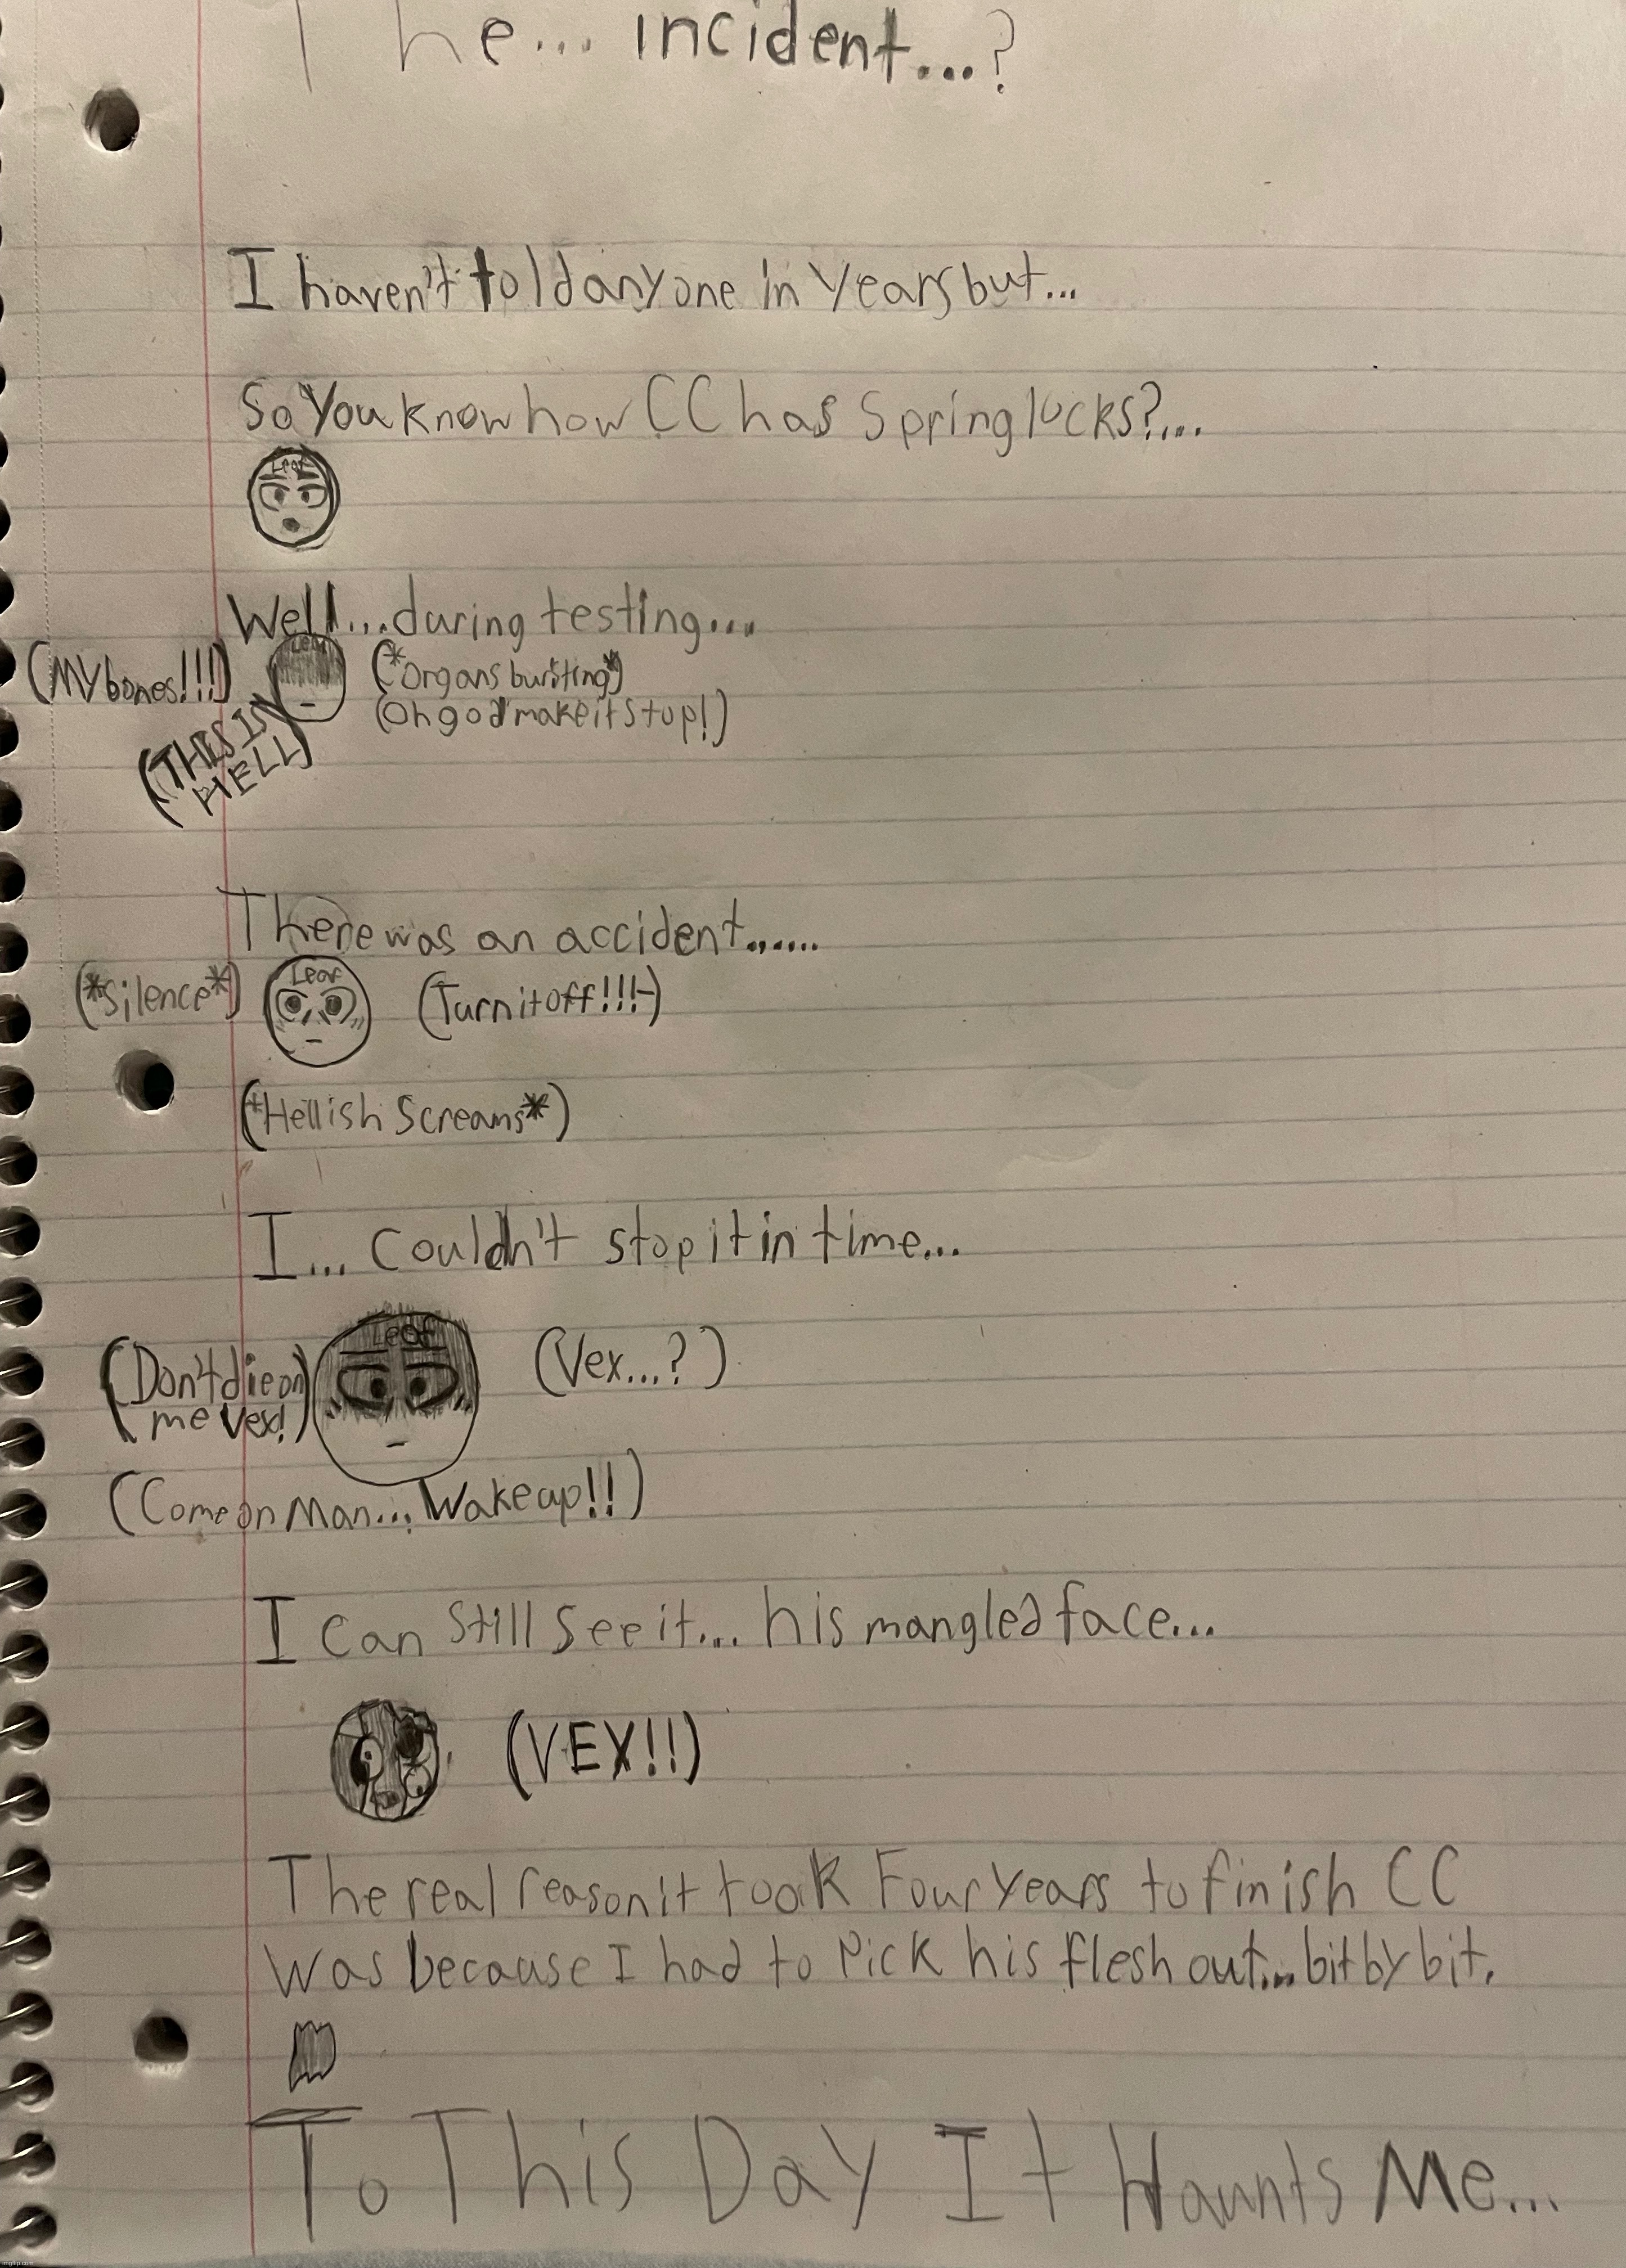 The... incident...?
I haven't told anyone in years but...
So you know how CC has Springlocks?....
Leaf
Well....during testing...
Leaf
(My bones!!!)
(*Organs bursting*)
(Oh god make it stop!)
(THIS IS
HELL)
There was an accident.......
(*Silence*)
Leaf
(Turn it off!!!-)
(*Hellish Screams*)
I... couldn't stop it in time...
Leaf
(Don't die on
me Vex!)
(Vex...?)
(Come on Man... Wake up!!)
I can still see it... his mangled face...
(VEX!!)
The real reason it took Four years to finish CC
Was because I had to Pick his flesh out... bit by bit.
To This Day It Haunts Me...
imgflip.com